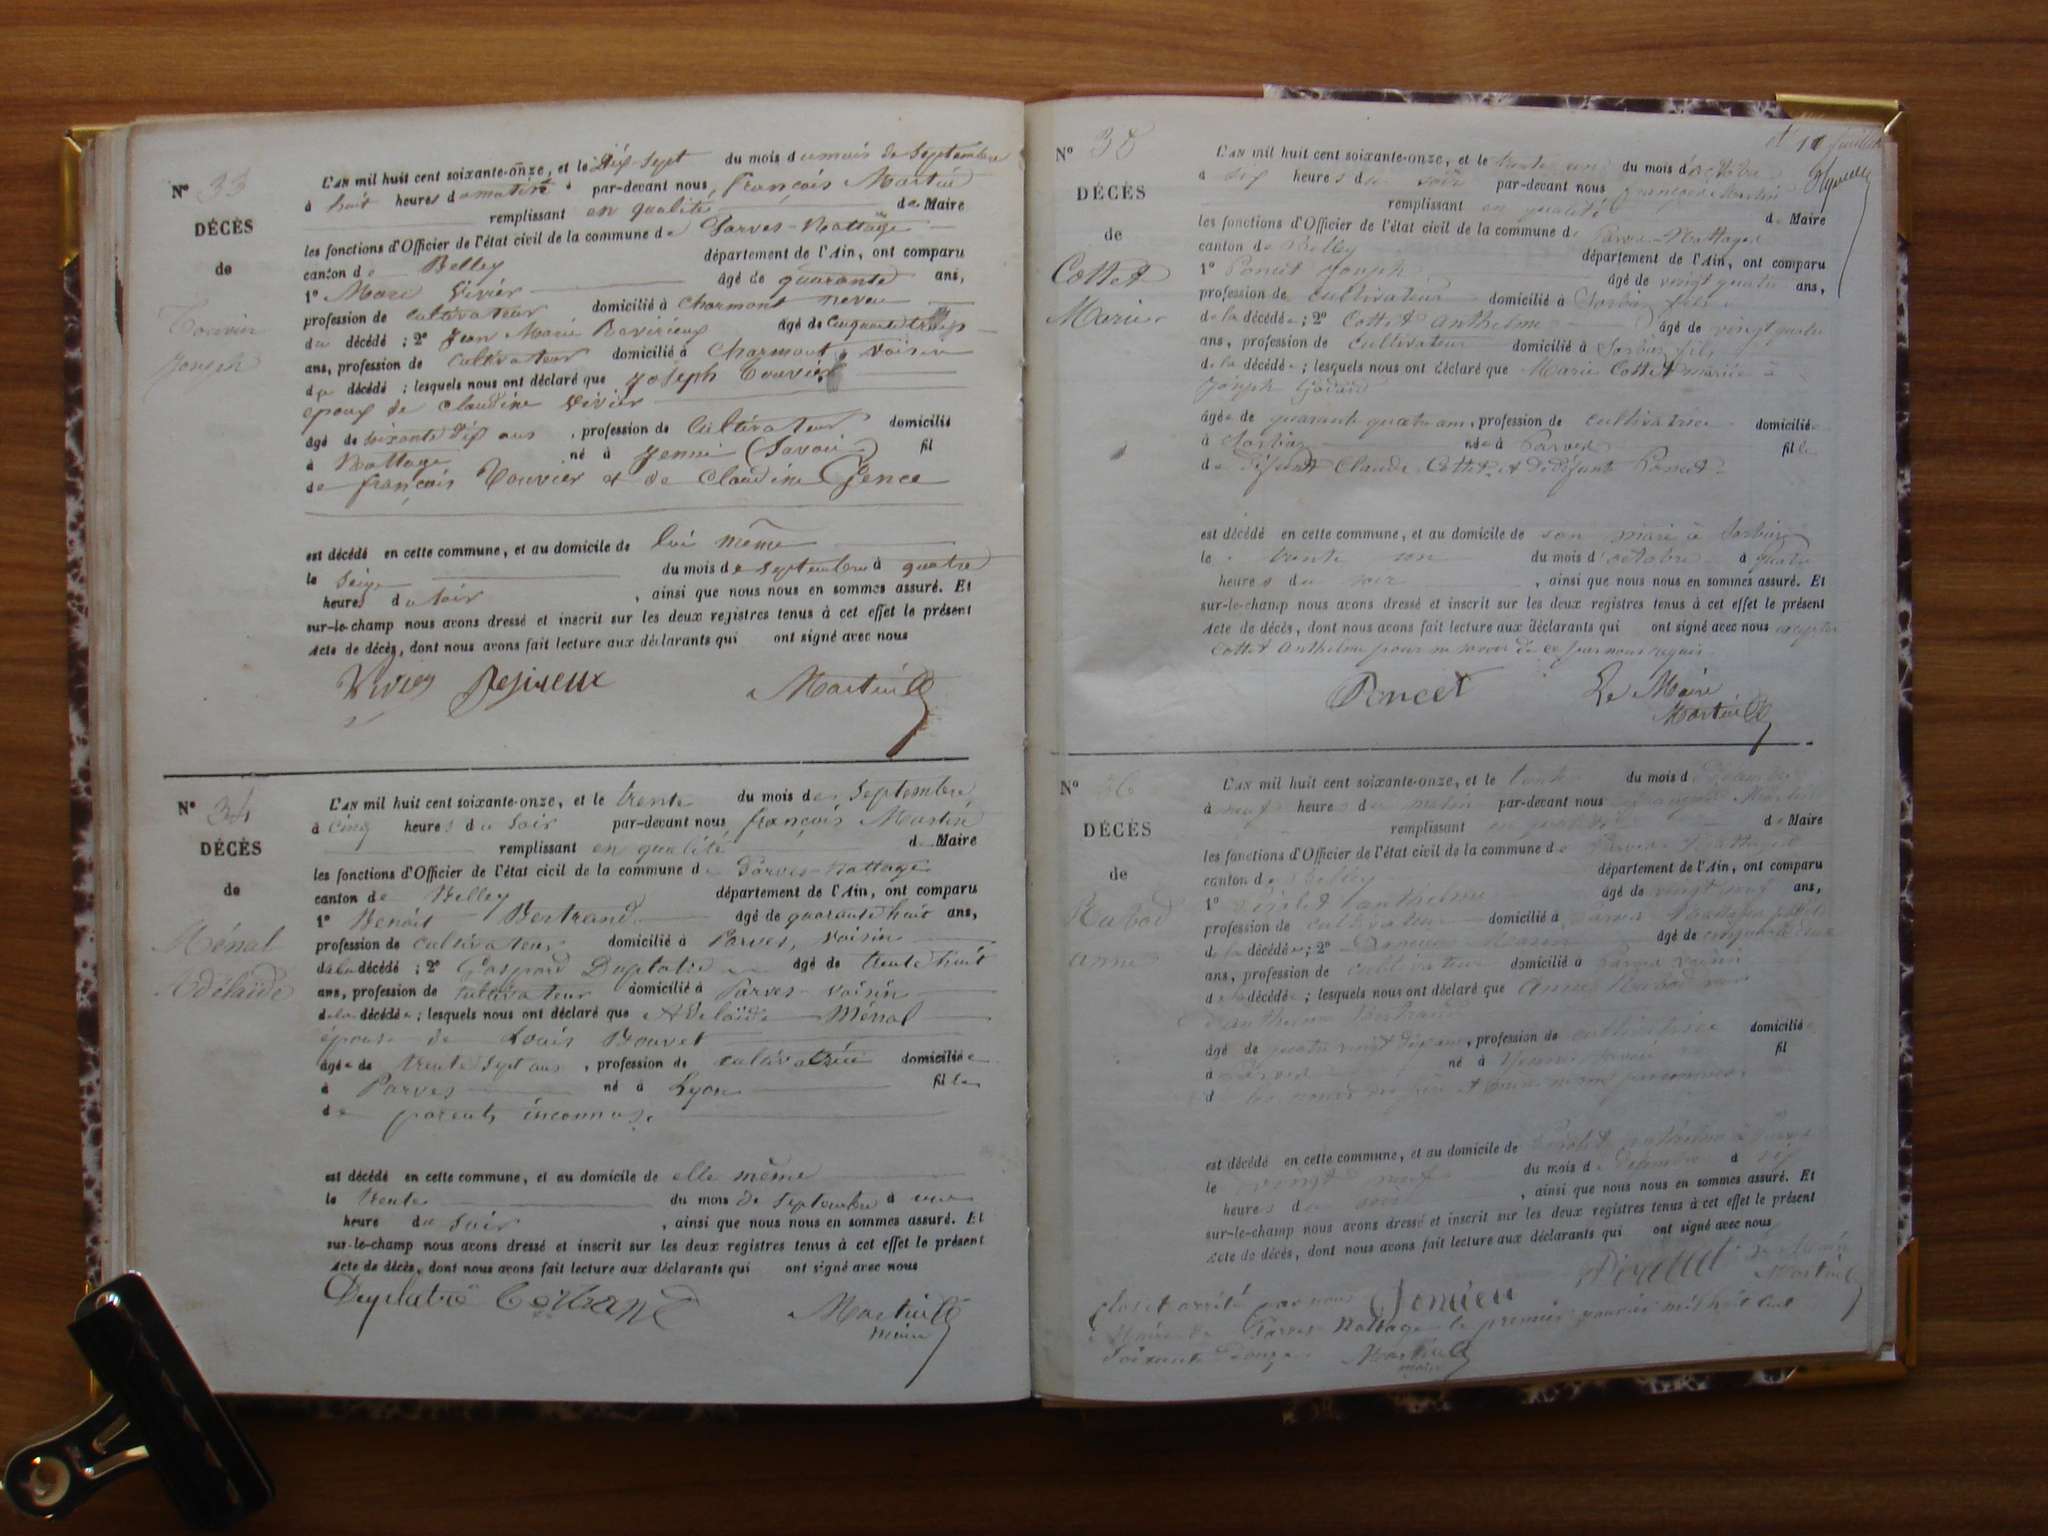 N° 33
DÉCÈS
de
Touvier
Joseph
L'AN mil huit cent soixante-onze, et le dix-sept du mois du mois de Septembre
à huit heures du matin par-devant nous, françois Martin
remplissant en qualité de Maire
les fonctions d'Officier de l'état civil de la commune de Parves-Nattage
canton de Belley département de l'Ain, ont comparu
1° Marc Vivier âgé de quarante ans,
profession de cultivateur domicilié à Charmont neveu
du décédé ; 2° Jean Marie âgé de Cinquante trois
ans, profession de cultivateur domicilié à Charmont, voisin
du décédé ; lesquels nous ont déclaré que Joseph Touvier
époux de Claudine Vivier
âgé de soixante dix ans , profession de Cultivateur domicilié
à Nattage né à Yenne (Savoie) fil
de françois Touvier et de Claudine Gence
est décédé en cette commune, et au domicile de lui même
le seize du mois de septembre à quatre
heures du soir , ainsi que nous nous en sommes assuré. Et
sur-le-champ nous avons dressé et inscrit sur les deux registres tenus à cet effet le présent
Acte de décès, dont nous avons fait lecture aux déclarants qui ont signé avec nous
Vivier Martin
N° 34
DÉCÈS
de
Ménal
Adélaïde
L'AN mil huit cent soixante-onze, et le trente du mois de Septembre
à cinq heures du soir par-devant nous françois Martin
remplissant en qualité de Maire
les fonctions d'Officier de l'état civil de la commune de Parves-Nattage
canton de Belley département de l'Ain, ont comparu
1° Benoit Bertrand âgé de quarante huit ans,
profession de cultivateur domicilié à Parves, voisin
de la décédé ; 2° Gaspard Duplatre âgé de trente huit
ans, profession de cultivateur domicilié à Parves voisin
de la décédée ; lesquels nous ont déclaré que Adelaïde Ménal
épouse de Louis Bouvet
âgée de trente sept ans , profession de cultivatrice domiciliée
à Parves né à Lyon fille
de parents inconnus.
est décédé en cette commune, et au domicile de elle même
le trente du mois de Septembre à une
heure du soir , ainsi que nous nous en sommes assuré. Et
sur-le-champ nous avons dressé et inscrit sur les deux registres tenus à cet effet le présent
Acte de décès, dont nous avons fait lecture aux déclarants qui ont signé avec nous
Duplatre Bertrand Martin
maire
et 11
N° 35
DÉCÈS
de
Cottet
Marie
L'AN mil huit cent soixante-onze, et le trente un du mois d'octobre
à six heures du soir par-devant nous françois Martin
remplissant en qualité de Maire
les fonctions d'Officier de l'état civil de la commune de Parves-Nattages
canton de Belley département de l'Ain, ont comparu
1° Poncet Joseph âgé de vingt quatre ans,
profession de cultivateur domicilié à Sorbiaz fils
de la décédée ; 2° Cottet Anthelme âgé de vingt quatre
ans, profession de cultivateur domicilié à Sorbiaz fils
de la décédée ; lesquels nous ont déclaré que Marie Cottet mariée à
Joseph
âgée de quarante quatre ans, profession de cultivatrice domiciliée
à Sorbiaz née à Parves fille
de défunt Claude Cottet et de défunte Poncet
est décédé en cette commune, et au domicile de son mari à Sorbiaz
le trente un du mois d'octobre à quatre
heures du soir , ainsi que nous nous en sommes assuré. Et
sur-le-champ nous avons dressé et inscrit sur les deux registres tenus à cet effet le présent
Acte de décès, dont nous avons fait lecture aux déclarants qui ont signé avec nous excepter
Cottet Anthelme pour ne savoir de ce par nous requis
Poncet Le Maire
Martin
N° 36
DÉCÈS
de
Rubod
Anne
L'AN mil huit cent soixante-onze, et le trente du mois de Décembre
à neuf heures du matin par-devant nous françois Martin
remplissant en qualité de Maire
les fonctions d'Officier de l'état civil de la commune de Parves Nattages
canton de Belley département de l'Ain, ont comparu
1° anthelme âgé de vingt neuf ans,
profession de cultivateur domicilié à Parves Nattages petit fils
de la décédée ; 2° âgé de cinquante deux
ans, profession de cultivateur domicilié à Parves voisin
de la décédée ; lesquels nous ont déclaré que Anne Rubod
d'anthelme
âgé de quatre vingt dix ans, profession de cultivatrice domicilié
à Parves né à Yenne fil
d
est décédé en cette commune, et au domicile de anthelme à Parves
le vingt neuf du mois de Décembre à six
heures du soir , ainsi que nous nous en sommes assuré. Et
sur-le-champ nous avons dressé et inscrit sur les deux registres tenus à cet effet le présent
Acte de décès, dont nous avons fait lecture aux déclarants qui ont signé avec nous
Martin
Clos et arrêté par nous
Maire de Parves Nattage le premier janvier mil huit cent
soixante douze Martin
maire